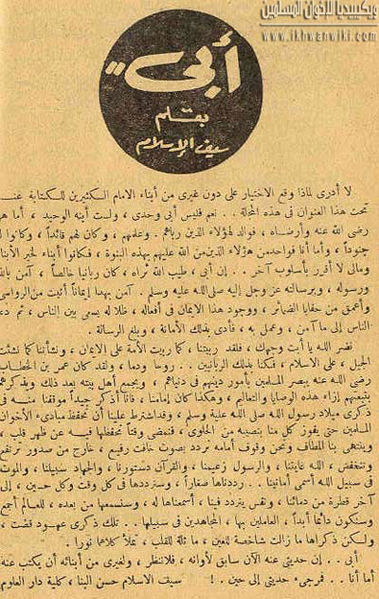 ويكيبيديا الإخوان المسلمين
www.ikhwanwiki.com
أبى ..
بقلم
سيف الإسلام
لا أدرى لماذا وقع الاختيار على دون غيرى من أبناء الامام الكثيرين للكتابة
تحت هذا العنوان فى هذه المجلة .. نعم فليس أبى وحدى ، ولست أبنه الوحيد ، أما هو
رضى الله عنه وأرضاه ، فوالد لهؤلاء الذين رباهم وعلمهم ، وكان لهم قائداً ، وكانوا له
جنوداً ، وأما أنا فواحد من هؤلاء الذين من الله عليهم بهذه البنوة ، فكانوا أبناء لخير الآباء
ومالى لا أقرر بأسلوب آخر .. إن أبى ، طيب الله ثراه ، كان ربانيا خالصاً ، آمن بالله
ورسوله ، وبرسالته عز وجل إليه صلى الله عليه وسلم . آمن بهذا إيماناً أثبت من الرواسى
وأعمق من خفايا الضمائر ، ووجود هذا الايمان فى أفعاله ، ظلا له يسعى بين الناس ، ثم دعا
الناس إلى ما آمن ، وعمل به ، فأدى بذلك الأمانة ، وبلغ الرسالة .
نضر الله يا أبت وجهك ، فلقد ربيتنا ، كما ربيت الأمة على الايمان ، ونشأتنا كما نشئت
الجيل ، على الاسلام ، فكنا بذلك الربانيين .. روسا ودما ، ولقد كان عمر بن الخطاب
رضى الله عنه يبصر المسلمين بأمور دينهم فى دنياهم ، ويجمع أهل بيته بعد ذلك ويذكرهم
بتبعتهم إزاء هذه الوصايا والتعاليم ، وهكذا كان إمامنا ، فأنا أذكر جيداً موقفنا منه فى
ذكرى ميلاد رسول الله صلى الله عليه وسلم ، وقد اشترط علينا أن تحفظ مبادىء الأخوان
المسلمين حتى يفوز كل منا بنصيبه من الحلوى ، فنمضى وقتاً نحفظها فيه عن ظهر قلب ،
وينتهى بنا المطاف ونحن وقوف أمامه نردد بصوت خافت رفيع ، خارج من صدور ترتفع
وتنخفض ، الله غايتنا ، والرسول زعيمنا ، والقرآن دستورنا ، والجهاد سبيلنا ، والموت
فى سبيل الله أسمى أمانينا .. رددناها صغاراً ، وسنرددها فى كل وقت وكل حين ، إلى
آخر قطرة من دمائنا ، ونفس يتردد فينا ، أسمعناها له ، وسنسمعها من بعده ، للعالم أجمع
وسنكون دائماً أبداً ، العاملين بها ، المجاهدين فى سبيلها .. تلك ذكرى عهود قضت ،
ولكن ذكراها ما زالت شاخصة للعين ، ماثلة للقلب ، تملأ كلاهما نورا .
أبى .. إن حديثى عنه الآن سابق لأوانه ، فلاننظر ، ولغيرى من أبنائه أن يكتب عنه
أما أنا .. فمرجىء حديثى إلى حين . ! سيف الاسلام حسن البنا ، كلية دار العلوم